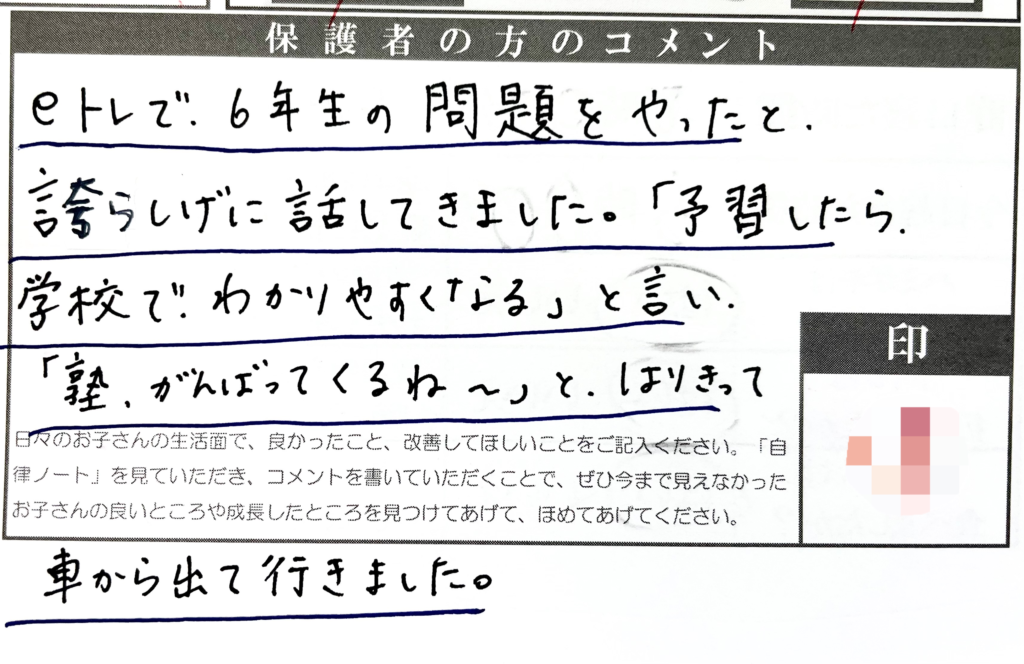 保護者の方のコメント
eトレで、6年生の問題をやったと、
誇らしげに話してきました。「予習したら、
学校で、わかりやすくなる」と言い、
「塾、がんばってくるね〜」と、はりきって
印
日々のお子さんの生活面で、良かったこと、改善してほしいことをご記入ください。「自
律ノート」を見ていただき、コメントを書いていただくことで、ぜひ今まで見えなかった
お子さんの良いところや成長したところを見つけてあげて、ほめてあげてください。
車から出て行きました。